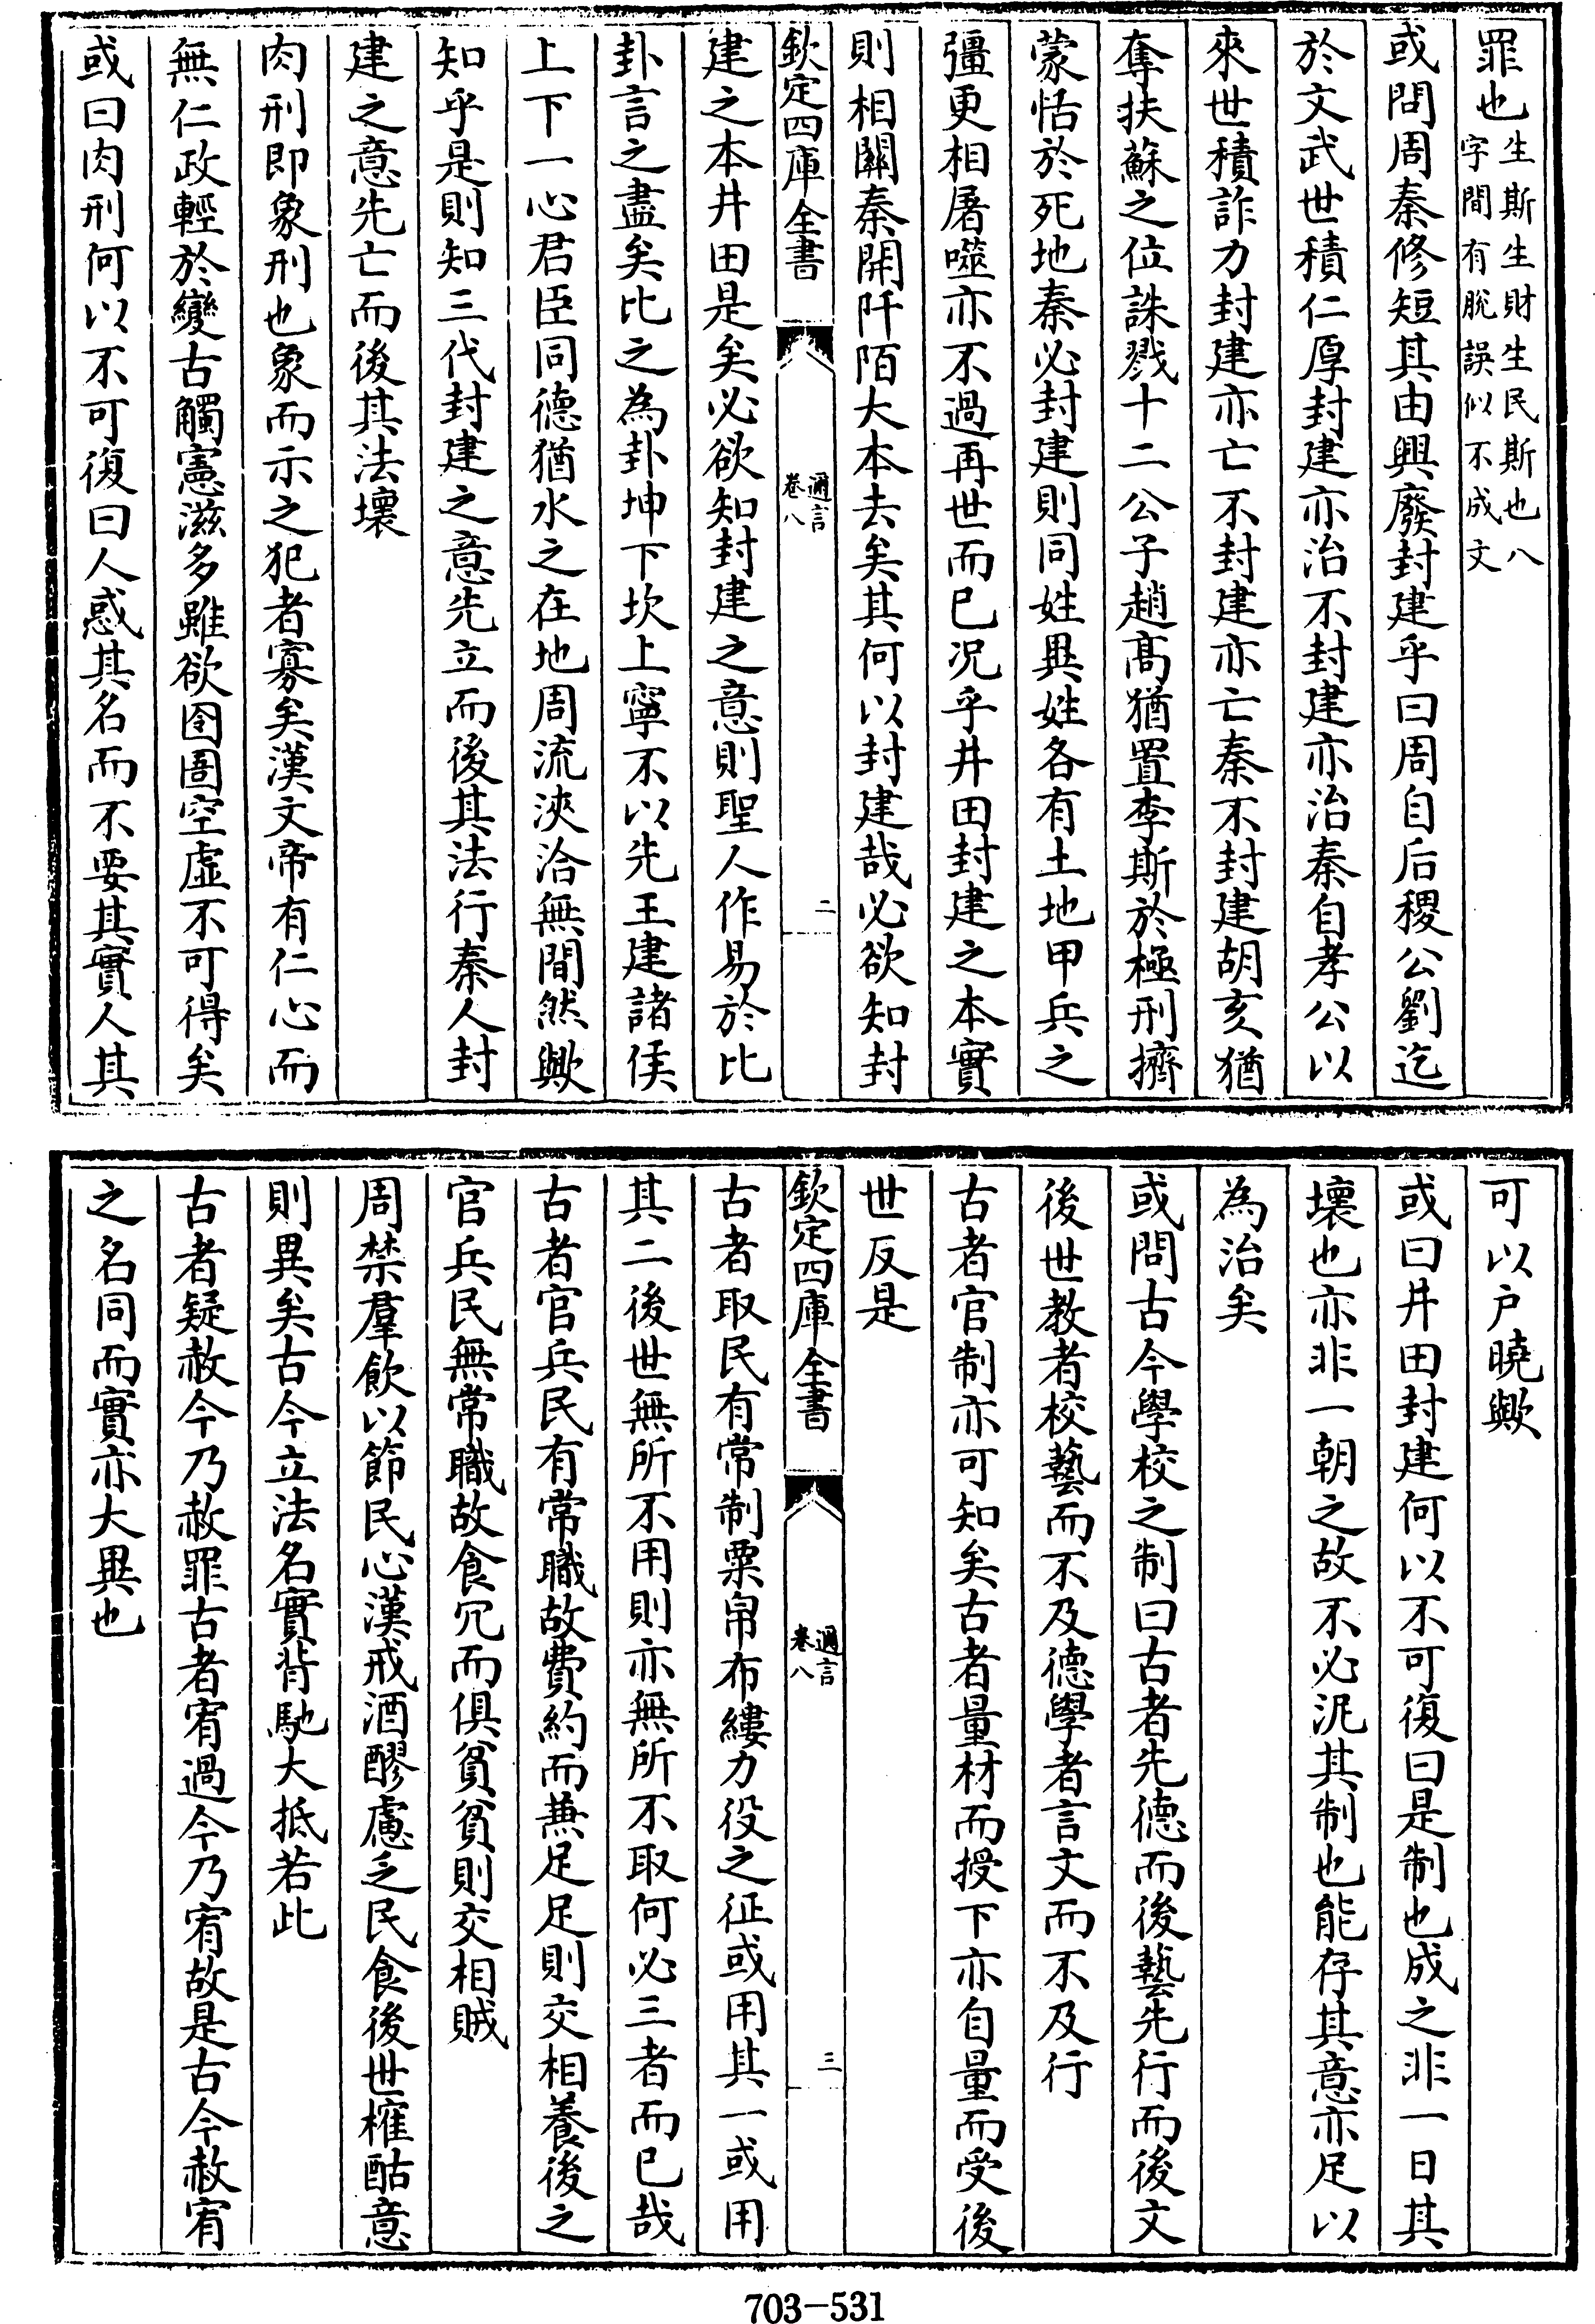 罪也生斯生財生民斯也八字間有脫誤似不成文
或問周秦修短其由興廢封建乎曰周自后稷公劉迄
於文武世積仁厚封建亦治不封建亦治秦自孝公以
來世積詐力封建亦亡不封建亦亡秦不封建胡亥猶
奪扶蘇之位誅戮十二公子趙髙猶置李斯於極刑擠
蒙恬於死地秦必封建則同姓異姓各有土地甲兵之
彊更相屠噬亦不過再世而已况乎井田封建之本實
則相關秦開阡陌大本去矣其何以封建哉必欲知封
欽定四庫全書
邇言
卷八
二
建之本井田是矣必欲知封建之意則聖人作易於比
卦言之盡矣比之為卦坤下坎上寧不以先王建諸侯
上下一心君臣同德猶水之在地周流浹洽無間然歟
知乎是則知三代封建之意先立而後其法行秦人封
建之意先亡而後其法壞
肉刑即象刑也象而示之犯者寡矣漢文帝有仁心而
無仁政輕於變古觸憲滋多雖欲囹圄空虛不可得矣
或曰肉刑何以不可復曰人惑其名而不要其實人其
可以户曉歟
或曰井田封建何以不可復曰是制也成之非一日其
壞也亦非一朝之故不必泥其制也能存其意亦足以
為治矣
或問古今學校之制曰古者先德而後藝先行而後文
後世教者校藝而不及德學者言文而不及行
古者官制亦可知矣古者量材而授下亦自量而受後
世反是
欽定四庫全書
邇言
卷八
三
古者取民有常制粟帛布縷力役之征或用其一或用
其二後世無所不用則亦無所不取何必三者而已哉
古者官兵民有常職故費約而兼足足則交相養後之
官兵民無常職故食冗而俱貧貧則交相賊
周禁羣飲以節民心漢戒酒醪慮乏民食後世榷酤意
則異矣古今立法名實背馳大抵若此
古者疑赦今乃赦罪古者宥過今乃宥故是古今赦宥
之名同而實亦大異也
703-531